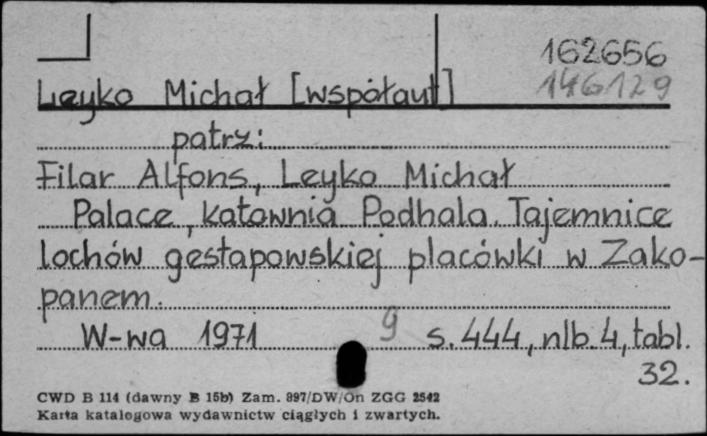 162656
146129
Leyko Michał [współaut]
patrz:
Filar Alfons, Leyko Michał
Palace, katownia Podhala. Tajemnice
lochów gestapowskiej placówki w Zako-
panem.
W-wa 1971 9 s. 444, nlb. 4, tabl.
32.
CWD B 114 (dawny B 15b) Zam. 897/DW/On ZGG 2542
Karta katalogowa wydawnictw ciągłych i zwartych.